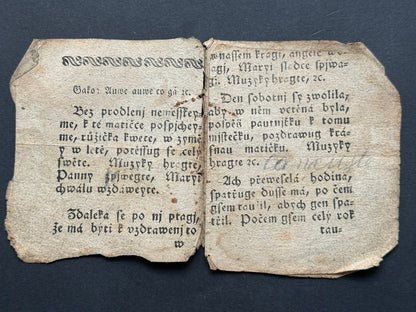 Gako: Auwe auwe co gá ꝛc.
Bez prodlenj nemesskey-
me, k té matičce pospjchey-
me, růžička kwete, w zymě
y w létě, potěssug se celý
swěte. Muzyky hragte,
Panny spjwegte, Maryi
chwálu wzdáweyte.
Zdaleka se po nj ptagj,
že má býti k vzdrawenj to
w
w nassem kragi, angelé w
ragi, Maryi sladce spjwa-
gi. Muzyky hragte, ꝛc.
Den sobotnj sy zwolila,
aby w něm ctěna byla,
pospěš pautnjku k tomu
městečku, pozdrawug krás-
nau matičku. Muzyky
hragte ꝛc.
Ach přeweselá hodina,
spatřuge dusse má, po čem
gsem tau'il, abych gen spa-
třil. Počem gsem celý rok
tau-